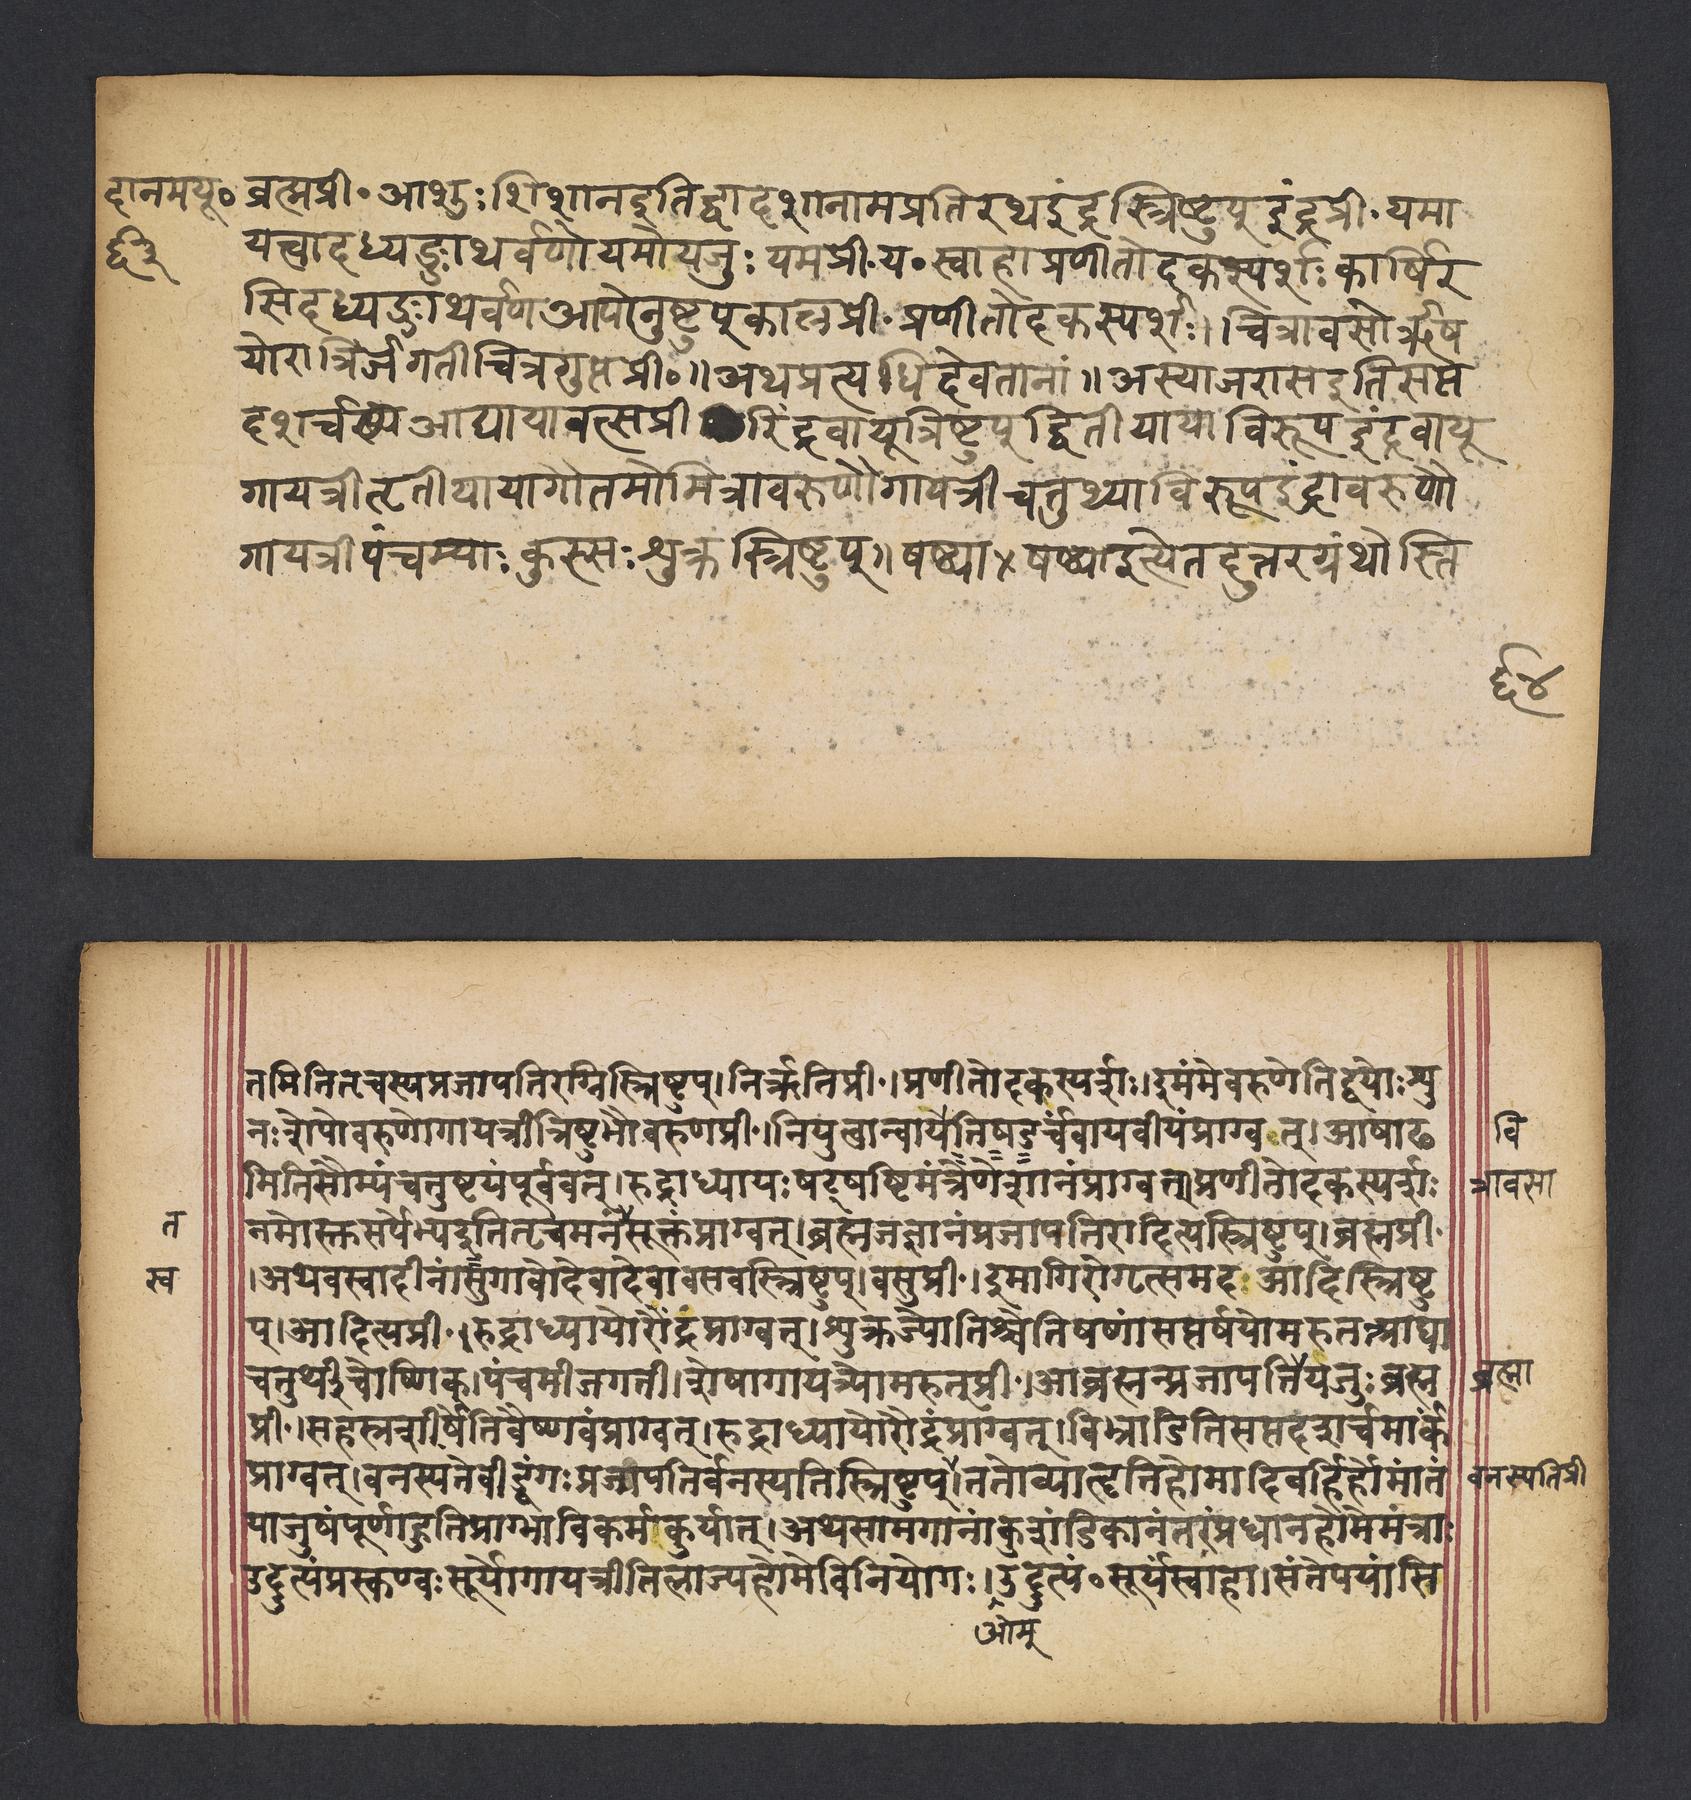 दानमयू॰ ब्रह्मप्री॰ आशुः शिशानइतिद्वादशानामप्रतिरथइंद्रस्त्रिष्टुप् इंद्रप्री॰ यमा
६३ यत्वादध्यङ्ङाथर्वणोयमोयजुः यमप्री॰य॰स्वाहाप्रणीतोदकस्पर्शः कार्षिर
सिदध्यङ्ङाथर्वणआपोनुष्टुप्कालप्री॰ प्रणीतोदकस्पर्शः। चित्रावसोर्ऋष
योरात्रिर्जगतीचित्रगुप्तप्री॰॥अथप्रत्यधिदेवतानां॥अस्याजरासइतिसप्त
दशर्चस्य आद्यायावत्सप्री रिंद्रवायूत्रिष्टुप् द्वितीयायाविरूपइंद्रवायू
गायत्रीतृतीयायागोतमोमित्रावरुणौगायत्रीचतुर्थ्याविरूपइंद्रावरुणौ
गायत्रीपंचम्याः कुत्सः शुक्रस्त्रिष्टुप्॥षष्ठ्या४षष्ठ्याइत्येतदुत्तरग्रंथोस्ति
६४
तमितितृचस्यप्रजापतिरग्निस्त्रिष्टुप्।निर्ऋतिप्री॰।प्रणीतोदकस्पर्शः।इमंमेवरुणेतिद्वयोःशु
नःशेपोवरुणोगायत्रीत्रिष्टुभौवरुणप्री॰।नियुत्वान्वायेतिषडर्चंवायवीयंप्राग्वत्।आषाढ वि
मितिसौम्यंचतुष्टयंपूर्ववत्।रुद्राध्यायःषट्षष्टिमंत्रैणैशानंप्राग्वत्।प्रणीतोदकस्पर्शः
त नमोस्तुसर्पेभ्यइतितृचमनंसूक्तंप्राग्वत्।ब्रह्मजज्ञानंप्रजापतिरादित्यस्त्रिष्टुप्।ब्रह्मप्री॰
स्व ।अथवस्वादीनां।सुगावोदेवादेवावसवस्त्रिष्टुप्।वसुप्री॰।इमागिरोगृत्समदः आदिस्त्रिष्टु
प्।आदित्यप्री॰।रुद्राध्यायोरौद्रंप्राग्वत्।शुक्रज्योतिश्चेतिषण्णांसप्तर्षयोमरुतआद्या
चतुर्थीचोष्णिक्।पंचमीजगती।शेषागायत्र्योमरुत्प्री॰।आब्रह्मन्प्रजापतिर्यजुःब्रह्म ब्रह्मा
प्री॰।सहस्रशीर्षेतिवैष्णवंप्राग्वत्।रुद्राध्यायोरौद्रंप्राग्वत्।विभ्राडितिसप्तदशर्चमार्कं
प्राग्वत्।वनस्पतेवीड्वंगःप्रजापतिर्वनस्पतिस्त्रिष्टुप्।ततोव्याहृतिहोमादिबर्हिर्होमांतं वनस्पतिप्री
याजुषंपूर्णाहुतिप्राग्भाविकर्माकुर्यात्।अथसामगानांकुशंडिकानंतरंप्रधानहोमेमंत्राः
उदुत्यंप्रस्कण्वःसूर्योगायत्रीतिलाज्यहोमेविनियोगः।उदुत्यं॰सूर्यंस्वाहा।संतेपयांसि
ओम्